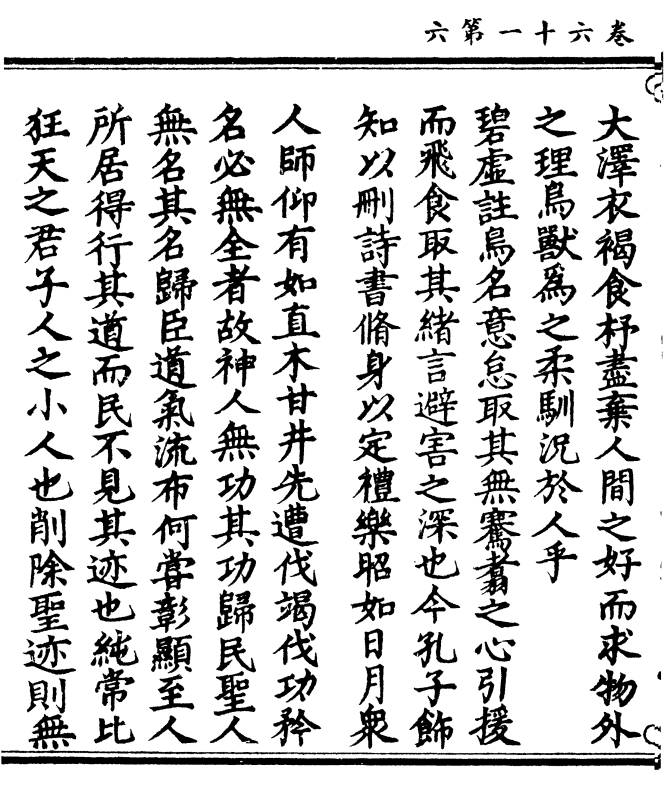 卷六十一第六
大澤衣褐食杼盡棄人間之好而求物外
之理鳥獸爲之柔馴況於人乎
碧虛註鳥名意怠取其無騫翥之心引援
而飛食取其緒言避害之深也今孔子飾
知以刪詩書脩身以定禮樂昭如日月衆
人師仰有如直木甘井先遭伐竭伐功矜
名必無全者故神人無功其功歸民聖人
無名其名歸臣道氣流布何嘗彰顯至人
所居得行其道而民不見其迹也純常比
狂天之君子人之小人也削除聖迹則無